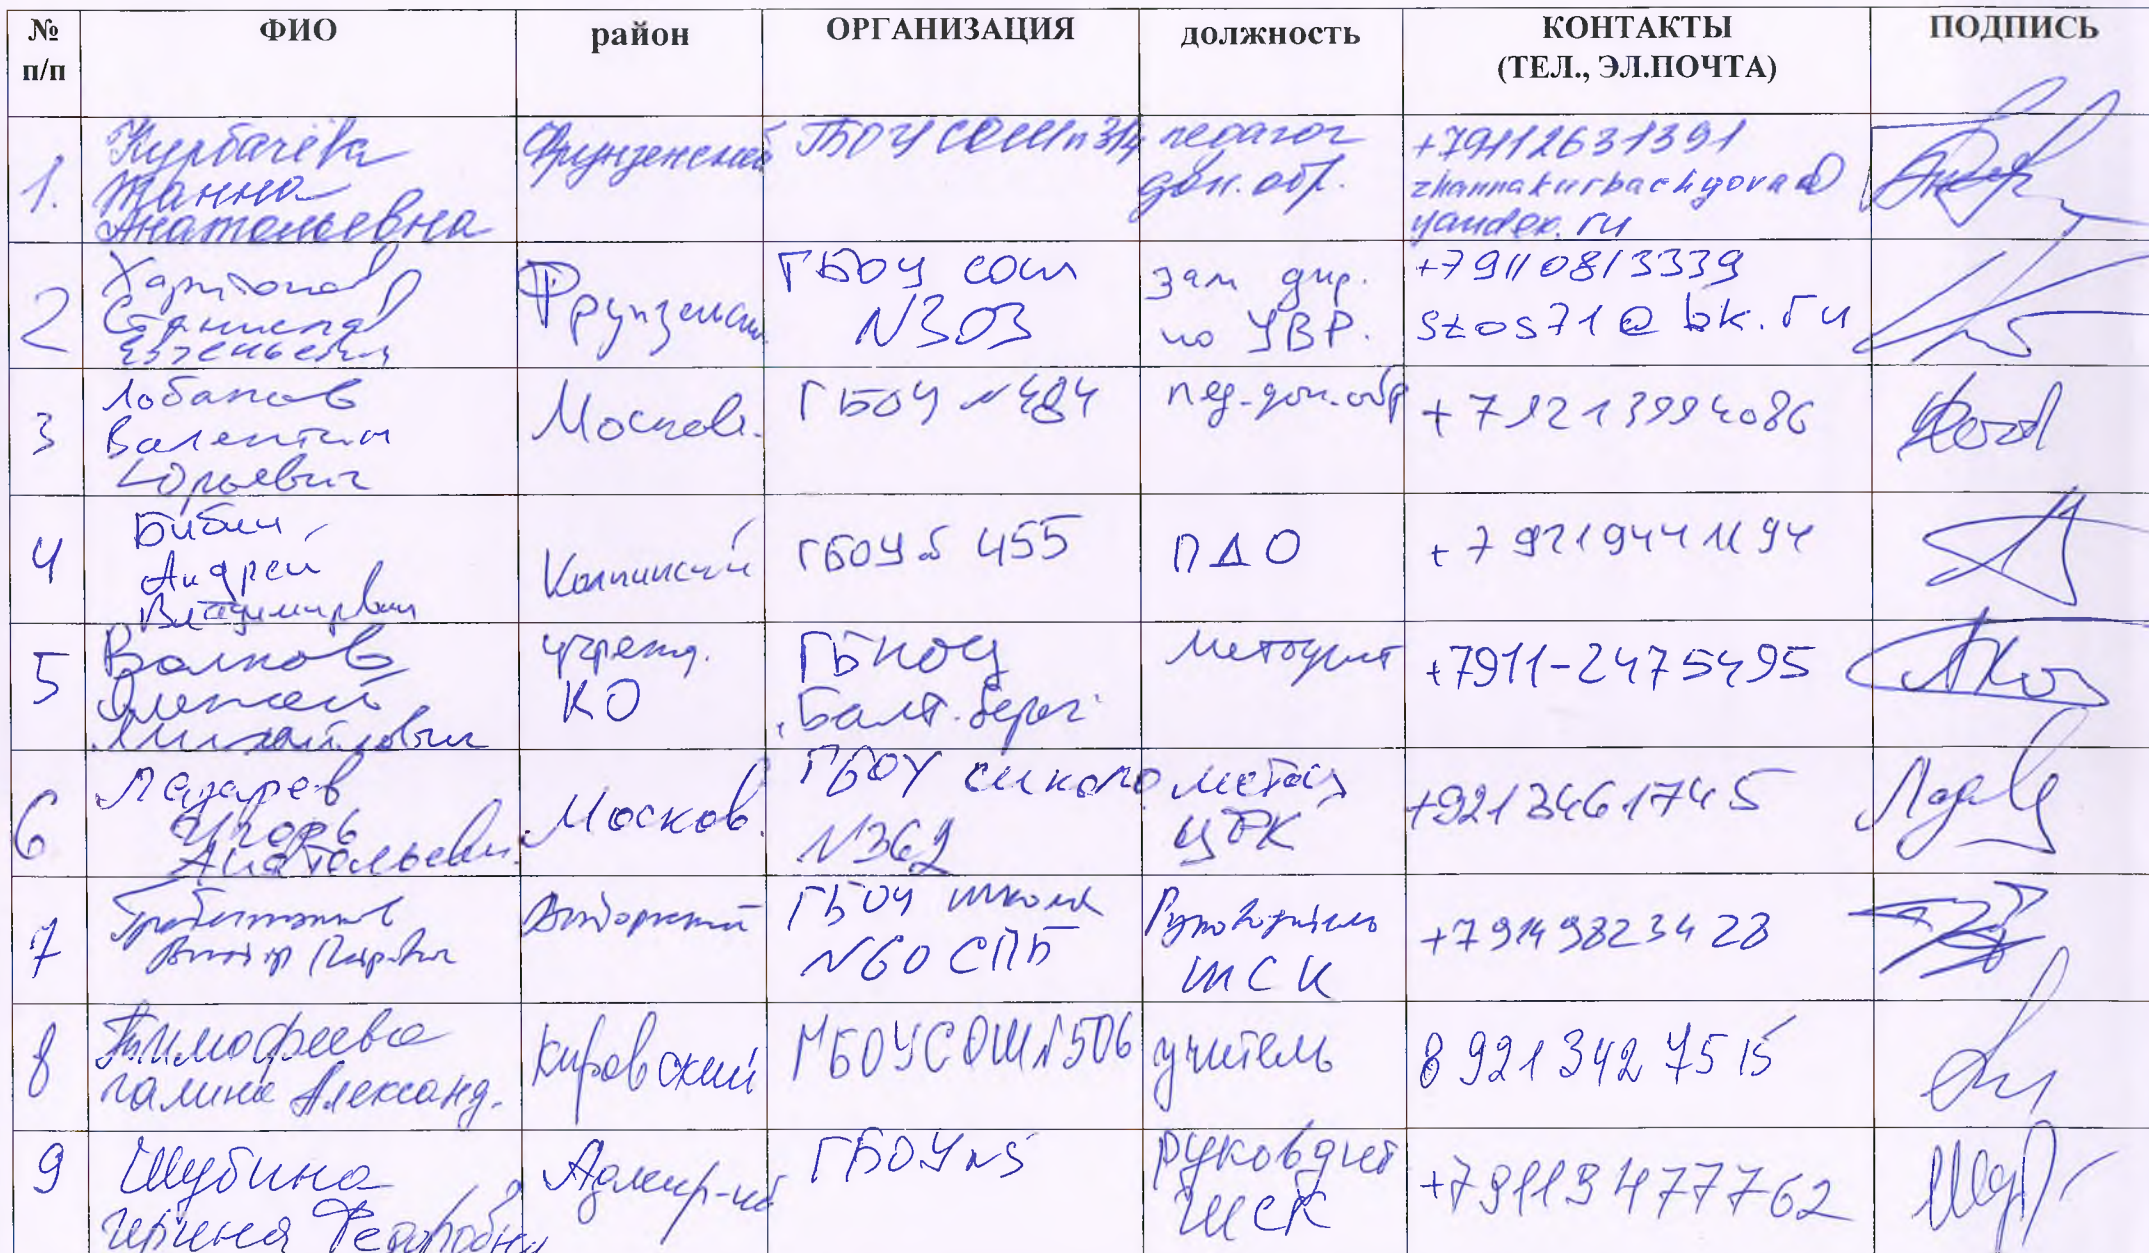 № п/п ФИО район ОРГАНИЗАЦИЯ должность КОНТАКТЫ (ТЕЛ., ЭЛ.ПОЧТА) ПОДПИСЬ
1. Курбачёва Жанна Анатольевна Фрунзенский ГБОУ СОШ №314 педагог доп. обр. +79112631391 zhannakurbachyova@yandex.ru
2 Харитонов Станислав Евгеньевич Фрунзенский ГБОУ сош N303 зам дир. по УВР. +79110813339 stos71@bk.ru
3 Лобанов Валентин Юрьевич Москов. ГБОУ №484 пед. доп. обр +79213994086
4 Бибич Андрей Владимирович Колпинский ГБОУ 455 ПДО +79219441194
5 Волков Алексей Михайлович учрежд. КО ГБНОУ "Балт. берег" методист +7911-2475495
6 Лазарев Игорь Анатольевич Москов. ГБОУ школа N362 +9213461745
7 Выборгский ГБОУ школа №60 СПБ Руководитель ШСК
8 Тимофеева Галина Александ. Кировский ГБОУ СОШ №506 учитель 8 921 342 75 15
9 Шубина Федоровна Адмир-ий ГБОУ №5 ШСК +79113477762